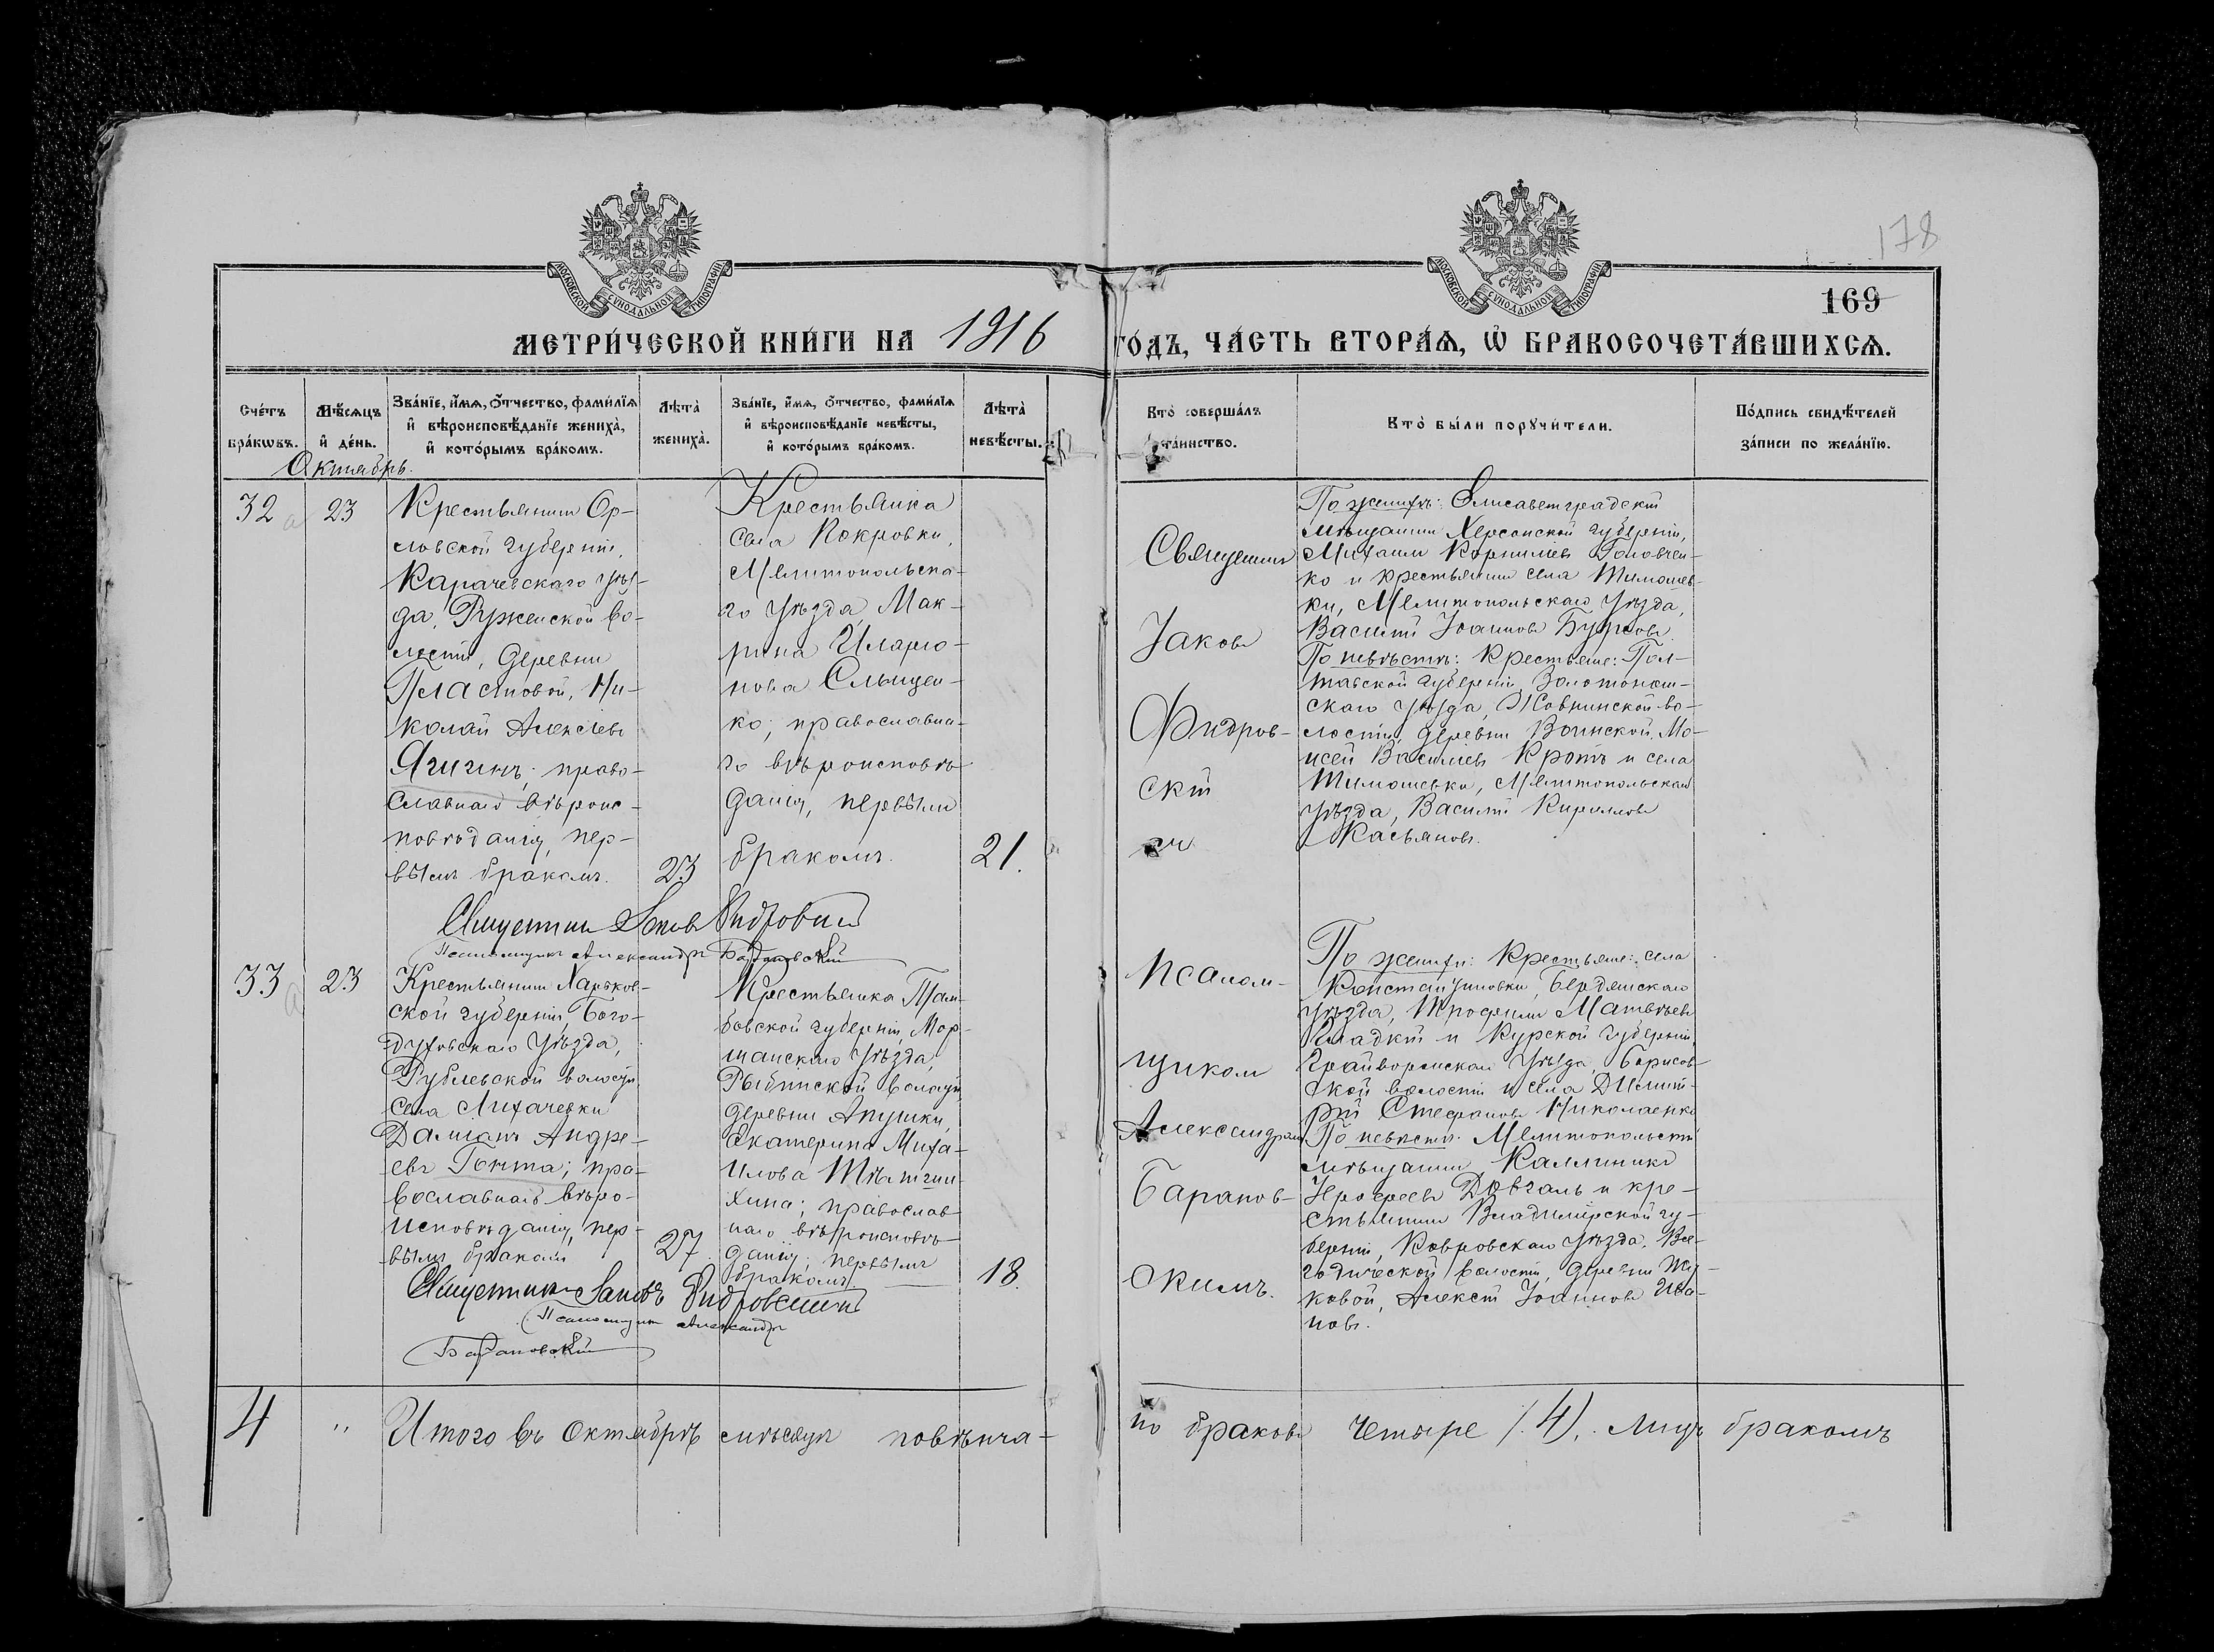 178
169
МОСКОВСКОЙ СѴНОДАЛЬНОЙ ТИПОГРАФІИ
МОСКОВСКОЙ СѴНОДАЛЬНОЙ ТИПОГРАФІИ
МЕТРИ́ЧЕСКОЙ КНИ́ГИ НА 1916 ГО́ДЪ, ЧА́СТЬ ВТОРА́Ѧ, Ѡ҆ БРАКОСОЧЕТА́ВШИХСѦ.
Сче́тъ бра́кѡвъ.
Мѣ́сѧцъ и҆ де́нь.
Зва́нїе, и҆́мѧ, ѻ҆́тчество, фами́лїѧ и҆ вѣроисповѣ́данїе жениха̀, и҆ кото́рымъ бра́комъ.
Лѣта̀ жениха̀.
Зва́нїе, и҆́мѧ, ѻ҆́тчество, фами́лїѧ и҆ вѣроисповѣ́данїе невѣ́сты, и҆ кото́рымъ бра́комъ.
Лѣта̀ невѣ́сты.
Кто̀ соверша́лъ та́инство.
Кто̀ бы́ли порꙋчи́тели.
По́дпись свидѣ́телей за́писи по жела́нїю.
Октябрь.
32
23
Крестьянинъ Ор-
ловской губерніи,
Карачевскаго уѣз-
да, Руженской во-
лости, деревни
Пластовой, Ни-
колай Алексѣевъ
Ячигинъ; право-
славнаго вѣроис-
повѣданія, пер-
вымъ бракомъ.
23
Крестьянка
села Покровки,
Мелитопольска-
го уѣзда, Мак-
рина Иларіо-
нова Слыщен-
ко; православна-
го вѣроисповѣ-
данія, первымъ
бракомъ.
21.
Священникъ
Іаковъ
Фидров-
скій
съ
По женихѣ: Елисаветградскій
мѣщанинъ Херсонской губерніи,
Михаилъ Корниліевъ Головчен-
ко и крестьянинъ села Тимошев-
ки, Мелитопольскаго уѣзда,
Василій Іоанновъ Бурковъ.
По невѣстѣ: крестьяне: Пол-
тавской губерніи, Золотонош-
скаго уѣзда, Жовнинской во-
лости, деревни Воинской, Мо-
исей Василіевъ Кротъ и села
Тимошевки, Мелитопольскаго
уѣзда, Василій Кирилловъ
Касьяновъ.
Священникъ Іаковъ Фидровскій
Псаломщикъ Александръ Барановскій
33
23
Крестьянинъ Харьков-
ской губерніи, Бого-
духовскаго уѣзда,
Рублевской волости,
села Лихачевки
Даміанъ Андре-
евъ Гонта; пра-
вославнаго вѣро-
исповѣданія, пер-
вымъ бракомъ
27
Крестьянка Там-
бовской губерніи, Мор-
шанскаго уѣзда,
Рыбинской волости,
деревни Апушки,
Екатерина Миха-
илова
православ-
наго вѣроисповѣ-
данія; первымъ
бракомъ.
18.
Псалом-
щикомъ
Александромъ
Баранов-
скимъ.
По женихѣ: крестьяне: села
Константиновки, Бердянскаго
уѣзда, Трофимъ Матвѣевъ
Гладкій и Курской губерніи,
Грайворонскаго уѣзда, Борисов-
ской волости и села Димит-
рій Стефановъ Николаенко
По невѣстѣ: Мелитопольскій
мѣщанинъ Каллиникъ
Іероѳеевъ Довгаль и кре-
стьянинъ Владимірской гу-
берніи, Ковровскаго уѣзда, Все-
годической волости, деревни Жу-
ковой, Алексій Іоанновъ Ива-
новъ.
Священникъ Іаковъ Фидровскій
Псаломщикъ Александръ
Барановскій
4 " Итого въ Октябрѣ мѣсяцѣ повѣнча-
но браковъ четыре (4). Лицъ бракомъ